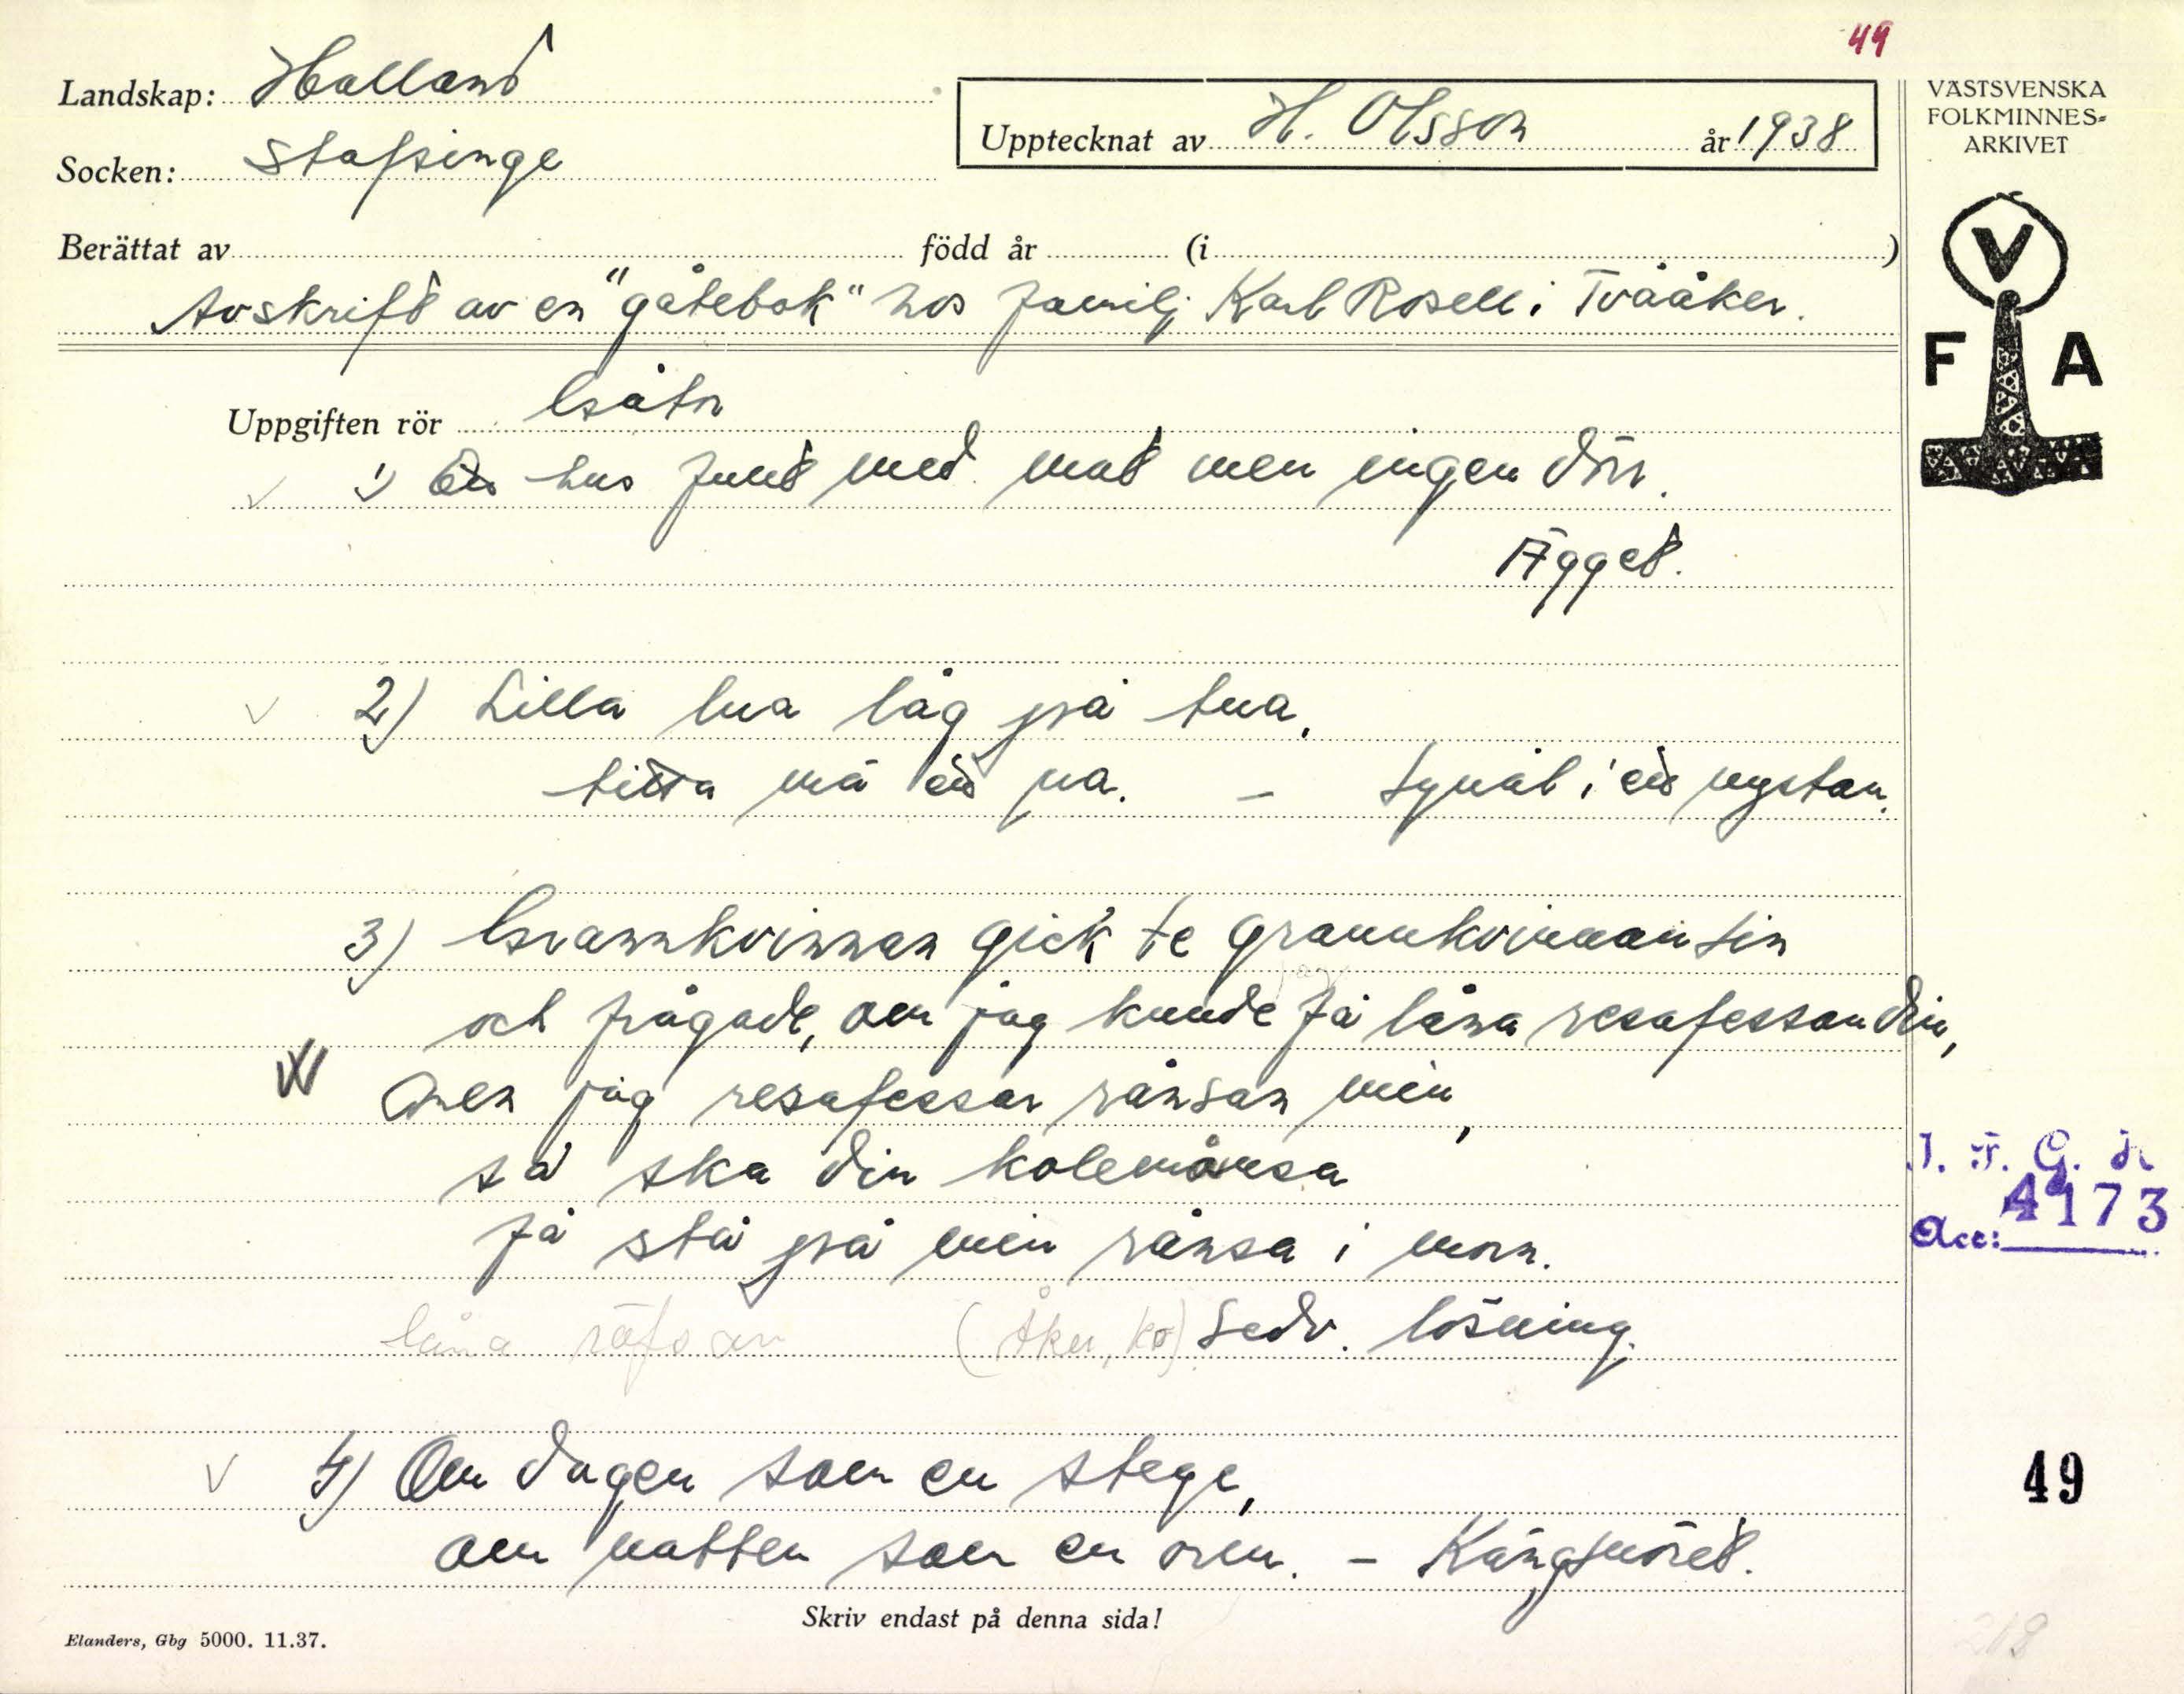 49
Landskap: Halland
Socken: Stafsinge
Upptecknat av H. Olsson år 1938
VÄSTSVENSKA
FOLKMINNES-
ARKIVET
V
F A
Berättat av född år (i )
Avskrift av en "gåtebok" hos familj Karl Rosell i Tvååker.
Uppgiften rör Gåtor
1) Ett hus fullt med mat men ingen dörr.
Ägget.
2) Lilla lua låg på tua,
titta mä ett ua. - Synål i ett nystan.
3) Grannkvinnan gick te grannkvinnan sin
och frågade, om jag kunde jag få låna resafessan din,
Men jag resafessar rånsan min,
så ska din kolemånsa
få stå på min rånsa i morn.
låna räfsan (Åker, ko) Sedv. lösning.
4) Om dagen som en stege,
om natten som en orm. - Kängsnöret.
I. F. G. H
4173
Acc:
49
Skriv endast på denna sida!
Elanders, Gbg 5000. 11.37.
219